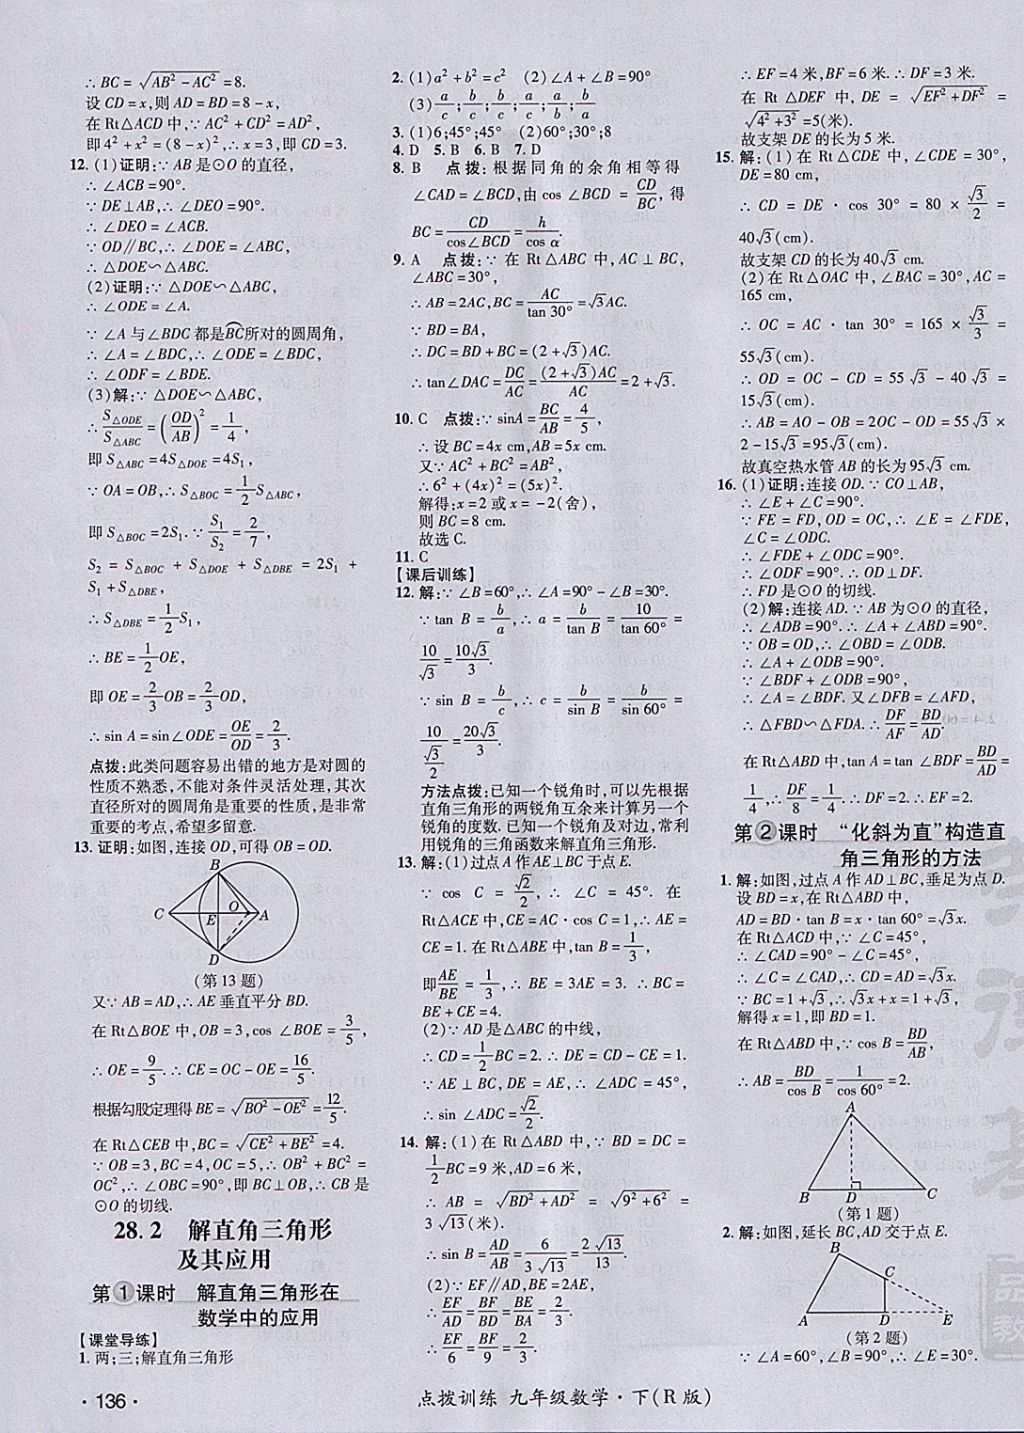 ∴BC=√(AB²-AC²)=8.
设CD=x,则AD=BD=8-x,
在Rt△ACD中,∵AC²+CD²=AD²,
即4²+x²=(8-x)²,∴x=3,即CD=3.
12. (1)证明:∵AB是⊙O的直径,
∴∠ACB=90°.
∵DE⊥AB,∴∠DEO=90°.
∴∠DEO=∠ACB.
∵OD∥BC,∴∠DOE=∠ABC,
∴△DOE∽△ABC.
(2)证明:∵△DOE∽△ABC,
∴∠ODE=∠A.
∵∠A与∠BDC都是BC所对的圆周角,
∴∠A=∠BDC,∴∠ODE=∠BDC,
∴∠ODF=∠BDE.
(3)解:∵△DOE∽△ABC,
∴S△ODE/S△ABC=(OD/AB)²=1/4,
即S△ABC=4S△DOE=4S₁,
∵OA=OB,∴S△BOC=1/2S△ABC,
即S△BOC=2S₁.∵S₁/S₂=2/7,
S₂=S△BOC+S△DOE+S△DBE=2S₁+
S₁+S△DBE,
∴S△DBE=1/2S₁,
∴BE=1/2OE,
即OE=2/3OB=2/3OD,
∴sin A=sin∠ODE=OE/OD=2/3.
点拨:此类问题容易出错的地方是对圆的
性质不熟悉,不能对条件灵活处理,其次
直径所对的圆周角是重要的性质,是非常
重要的考点,希望多留意.
13. 证明:如图,连接OD,可得OB=OD.
B
C E O A
D
(第13题)
又∵AB=AD,∴AE垂直平分BD.
在Rt△BOE中,OB=3,cos∠BOE=3/5,
∴OE=9/5.∴CE=OC-OE=16/5.
根据勾股定理得BE=√(BO²-OE²)=12/5.
在Rt△CEB中,BC=√(CE²+BE²)=4.
∵OB=3,BC=4,OC=5,∴OB²+BC²=
OC²,∴∠OBC=90°,即BC⊥OB,∴CB是
⊙O的切线.
28.2 解直角三角形
及其应用
第1课时 解直角三角形在
数学中的应用
【课堂导练】
1. 两;三;解直角三角形
· 136 ·
2. (1)a²+b²=c² (2)∠A+∠B=90°
(3)a/c;b/c;a/b;b/c;a/c;b/a
3. (1)6;45°;45° (2)60°;30°;8
4. D 5. B 6. B 7. D
8. B 点拨:根据同角的余角相等得
∠CAD=∠BCD,由cos∠BCD=CD/BC,得
BC=CD/cos∠BCD=h/cos α.
9. A 点拨:∵在Rt△ABC中,AC⊥BC,
∠ABC=30°,
∴AB=2AC,BC=AC/tan 30°=√3AC.
∵BD=BA,
∴DC=BD+BC=(2+√3)AC.
∴tan∠DAC=DC/AC=(2+√3)AC/AC=2+√3.
10. C 点拨:∵sinA=BC/AB=4/5,
∴设BC=4x cm,AB=5x cm.
又∵AC²+BC²=AB²,
∴6²+(4x)²=(5x)².
解得:x=2或x=-2(舍),
则BC=8 cm.
故选C.
11. C
【课后训练】
12. 解:∵∠B=60°,∴∠A=90°-∠B=30°.
∵tan B=b/a,∴a=b/tan B=10/tan 60°=
10/√3=10√3/3.
∵sin B=b/c,∴c=b/sin B=b/sin 60°=
10/(√3/2)=20√3/3.
方法点拨:已知一个锐角时,可以先根据
直角三角形的两锐角互余来计算另一个
锐角的度数.已知一锐角及对边,常利
用锐角的三角函数来解直角三角形.
13. 解:(1)过点A作AE⊥BC于点E.
∵cos C=√2/2,∴∠C=45°.在
Rt△ACE中,CE=AC·cos C=1,∴AE=
CE=1.在Rt△ABE中,tan B=1/3,
即AE/BE=1/3,∴BE=3AE=3.∴BC=
BE+CE=4.
(2)∵AD是△ABC的中线,
∴CD=1/2BC=2.∴DE=CD-CE=1.
∵AE⊥BC,DE=AE,∴∠ADC=45°,
∴sin∠ADC=√2/2.
14. 解:(1)在Rt△ABD中,∵BD=DC=
1/2BC=9米,AD=6米,
∴AB=√(BD²+AD²)=√(9²+6²)=
3√13(米).
∴sin B=AD/AB=6/(3√13)=2√13/13.
(2)∵EF∥AD,BE=2AE,
∴EF/AD=BF/BD=BE/BA=2/3.
∴EF/6=BF/9=2/3.
点拨训练 九年级数学·下(R版)
∴EF=4米,BF=6米.∴DF=3米.
在Rt△DEF中,DE=√(EF²+DF²)=
√(4²+3²)=5(米).
故支架DE的长为5米.
15. 解:(1)在Rt△CDE中,∠CDE=30°,
DE=80 cm,
∴CD=DE·cos 30°=80×√3/2=
40√3(cm).
故支架CD的长为40√3 cm.
(2)在Rt△OAC中,∠BAC=30°,AC=
165 cm,
∴OC=AC·tan 30°=165×√3/3=
55√3(cm).
∴OD=OC-CD=55√3-40√3=
15√3(cm).
∴AB=AO-OB=2OC-OD=55√3×
2-15√3=95√3(cm).
故真空热水管AB的长为95√3 cm.
16. (1)证明:连接OD.∵CO⊥AB,
∴∠E+∠C=90°.
∵FE=FD,OD=OC,∴∠E=∠FDE,
∠C=∠ODC.
∴∠FDE+∠ODC=90°.
∴∠ODF=90°.∴OD⊥DF.
∴FD是⊙O的切线.
(2)解:连接AD.∵AB为⊙O的直径,
∴∠ADB=90°.∴∠A+∠ABD=90°.
∵OB=OD,∴∠OBD=∠ODB.
∴∠A+∠ODB=90°.
∵∠BDF+∠ODB=90°,
∴∠A=∠BDF.又∠DFB=∠AFD,
∴△FBD∽△FDA.∴DF/AF=BD/AD.
在Rt△ABD中,tan A=tan∠BDF=BD/AD=
1/4,∴DF/8=1/4.∴DF=2.∴EF=2.
第2课时 “化斜为直”构造直
角三角形的方法
1. 解:如图,过点A作AD⊥BC,垂足为点D.
设BD=x,在Rt△ABD中,
AD=BD·tan B=x·tan 60°=√3x.
在Rt△ACD中,∵∠C=45°,
∴∠CAD=90°-∠C=45°,
∴∠C=∠CAD,∴CD=AD=√3x.
∵BC=1+√3,∴√3x+x=1+√3,
解得x=1,即BD=1.
在Rt△ABD中,∵cos B=BD/AB,
∴AB=BD/cos B=1/cos 60°=2.
A
B D C
(第1题)
2. 解:如图,延长BC,AD交于点E.
B
C
A D E
(第2题)
∵∠A=60°,∠B=90°,∴∠E=30°.